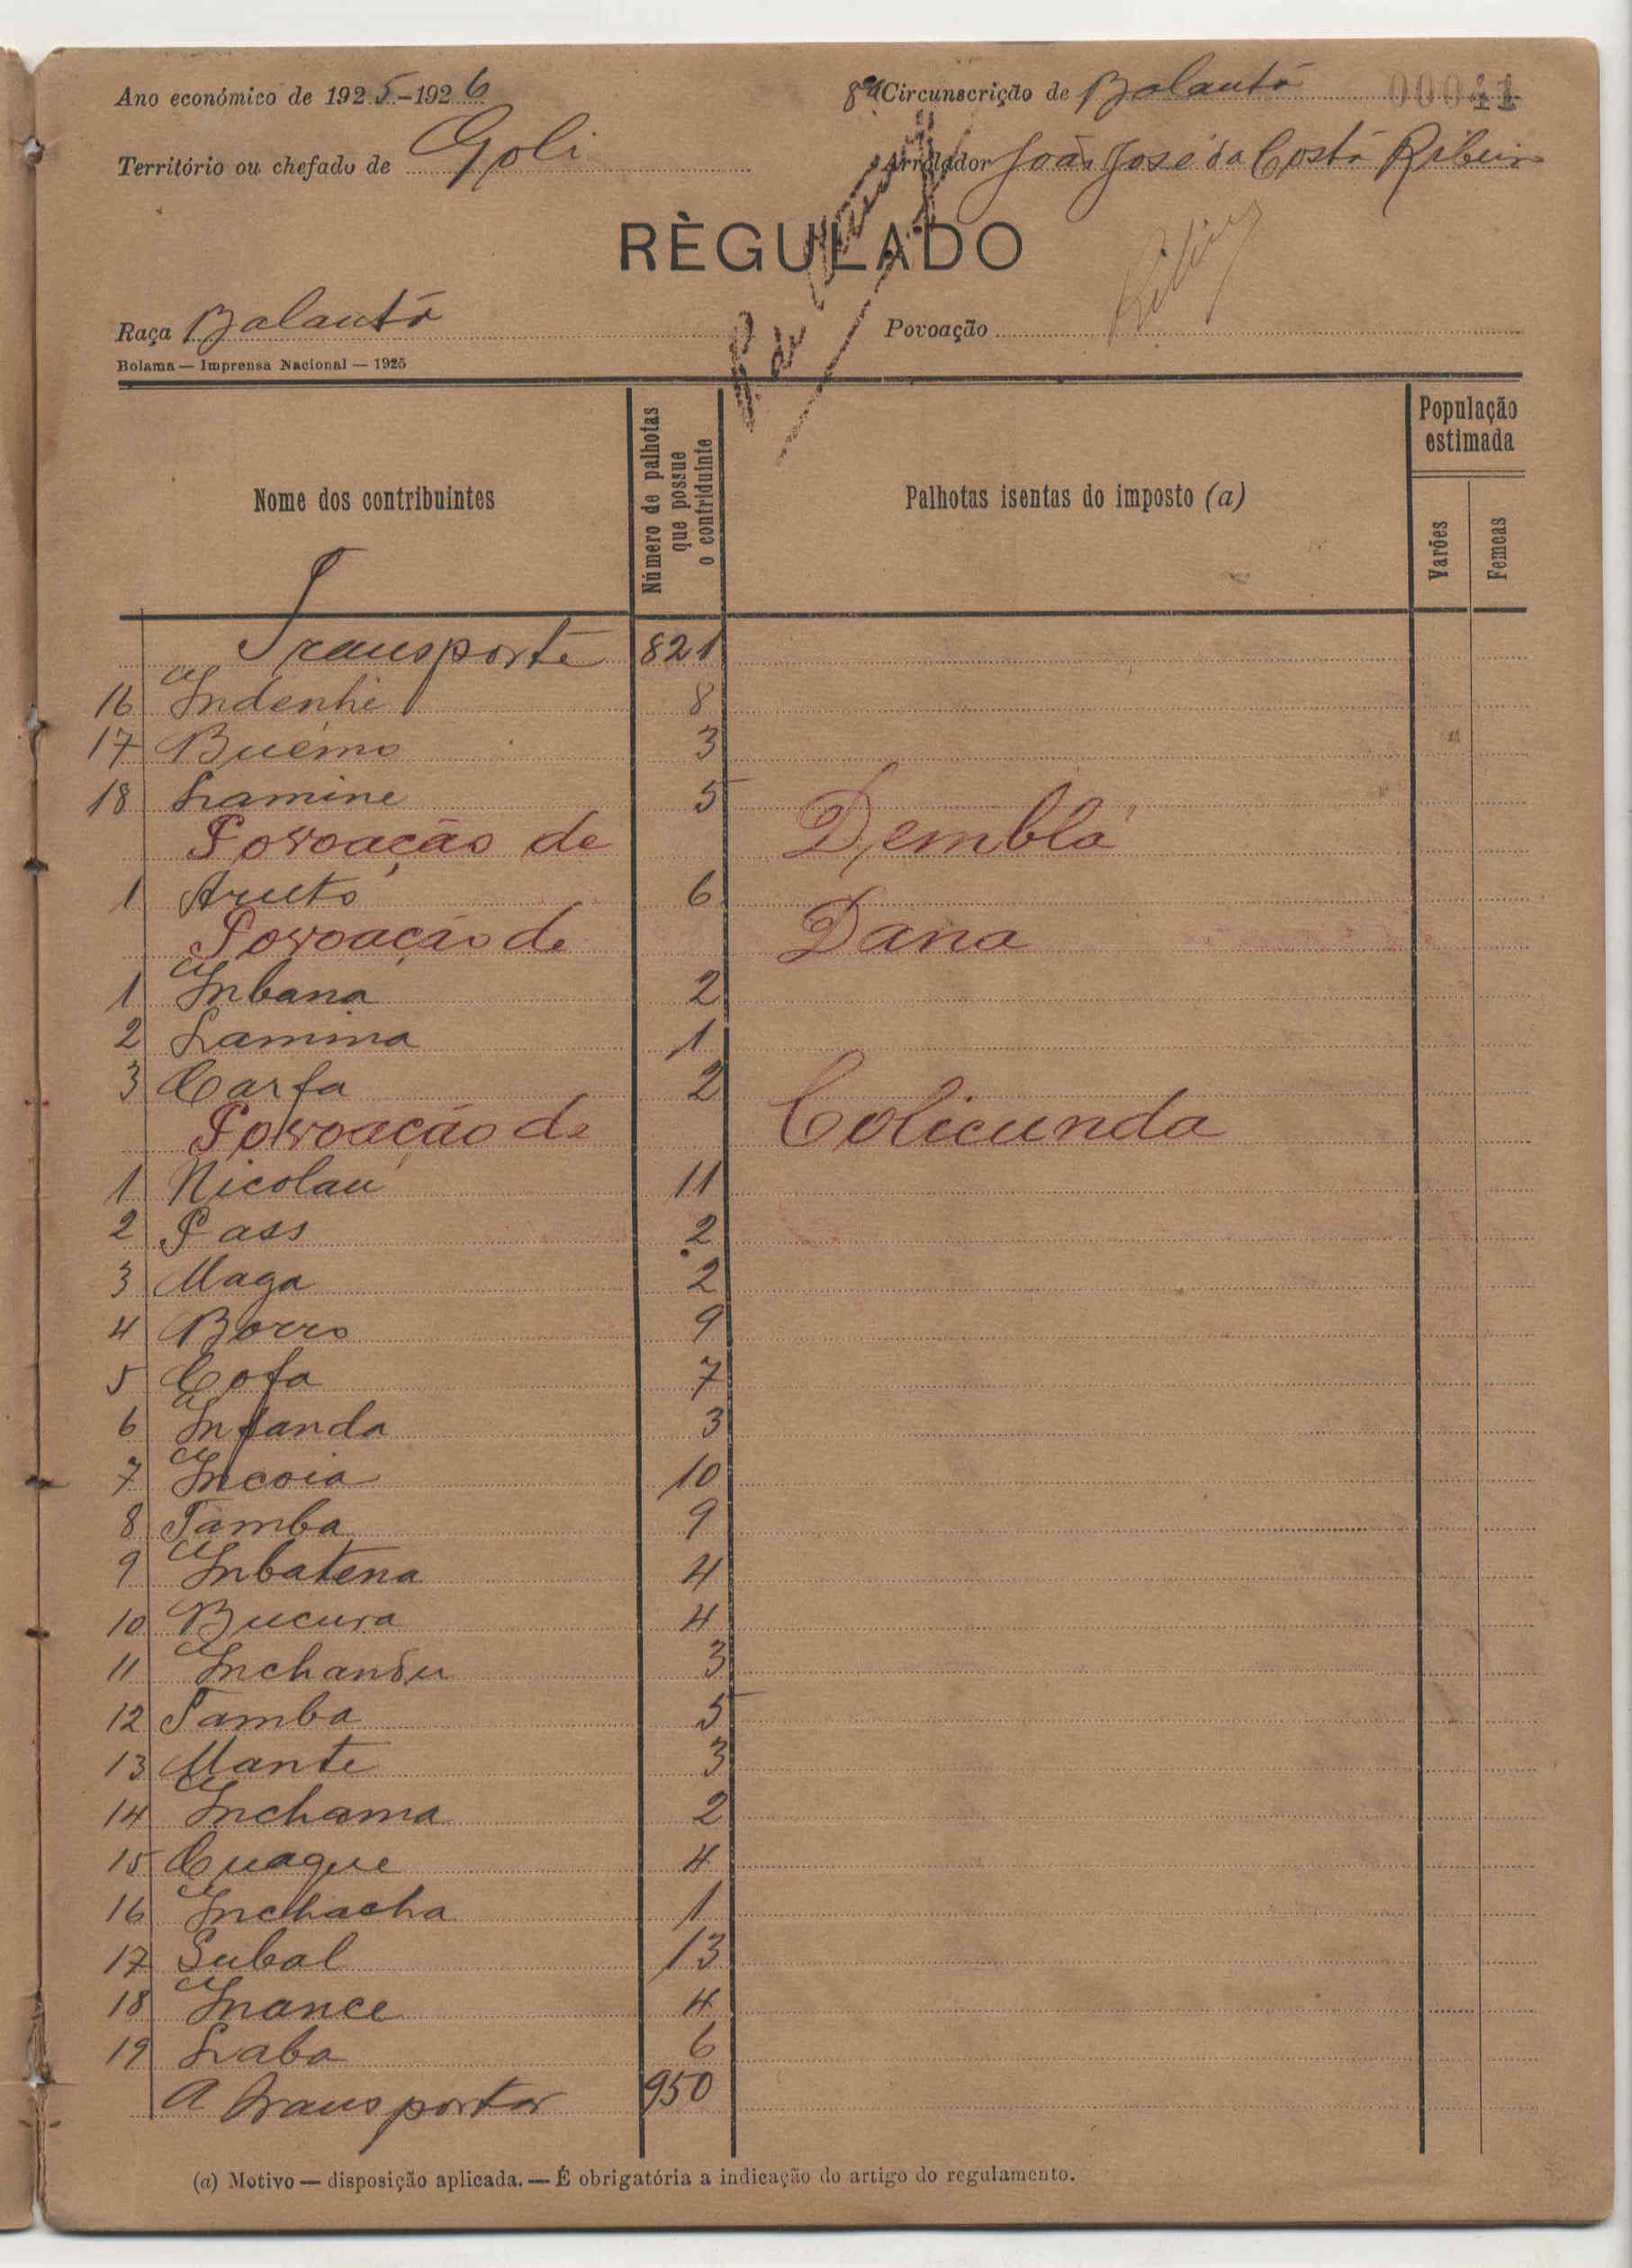 Ano económico de 1925-1926
8ª Circunscrição de Balanta 00041
Território ou chefado de Goli
Arrolador João José da Costa Ribeiro
RÈGULADO
Raça Balanta
Povoação
Bolama — Imprensa Nacional — 1925
Nome dos contribuintes
Número de palhotas que possue o contriduinte
Palhotas isentas do imposto (a)
População estimada
Varões
Femeas
Transporte 821
16 Indenhe 8
17 Buémo 3
18 Lamine 5
Povoação de Demblá
1 Arutó 6
Povoação de Dana
1 Inbana 2
2 Lamina 1
3 Carfa 2
Povoação de Colicunda
1 Nicolau 11
2 Pass 2
3 Maga 2
4 Borro 9
5 Cofa 7
6 Infanda 3
7 Incoia 10
8 Tamba 9
9 Inbatena 4
10 Bucura 4
11 Inchandu 3
12 Tamba 5
13 Mante 3
14 Inchama 2
15 Cuaque 4
16 Inchacha 1
17 Subal 13
18 Inance 4
19 Laba 6
A transportar 950
(a) Motivo — disposição aplicada. — É obrigatória a indicação do artigo do regulamento.